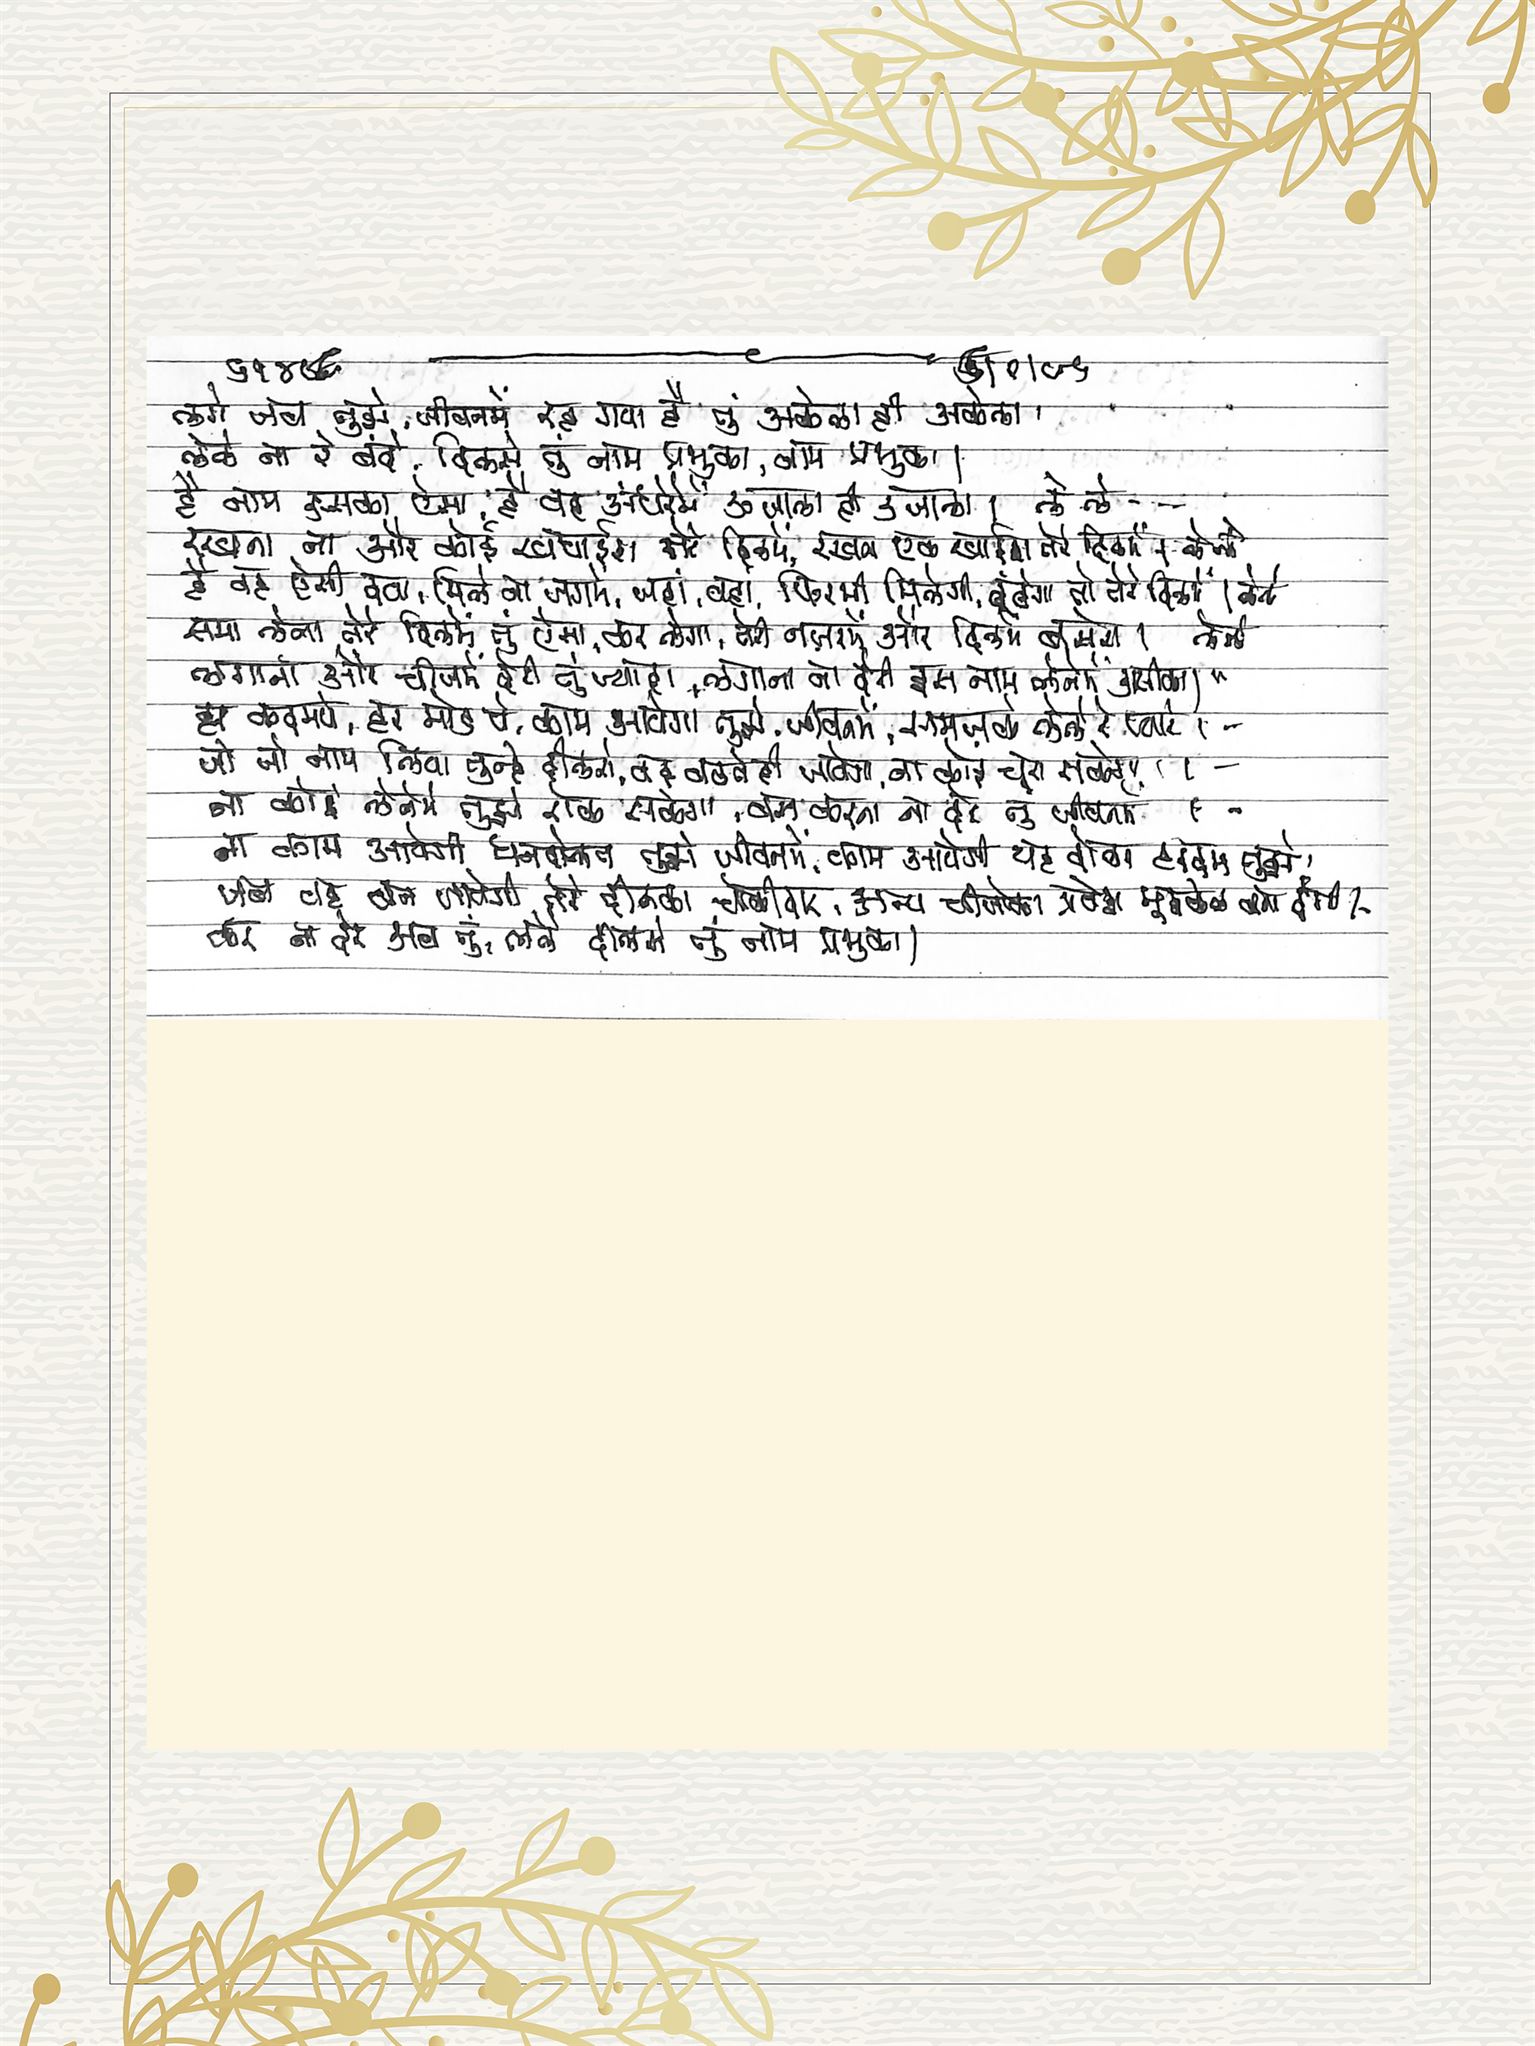 लगे जब तुझे, जीवनमें रह गया है तुं अकेला ही अकेला,
लेले ना रे बंदे, दिलसे तुं नाम प्रभुका, नाम प्रभुका।
है नाम उसका ऐसा, है वह अंधेरेमें उजाला ही उजाला। ले ले ---
रखना ना और कोई ख्वाईश तेरे दिलमें, रखना एक ख्वाईश तेरे दिलमें। लेले
है वह ऐसी दवा, मिले ना जगमें, जहां, वहां, फिरभी मिलेगी, ढूंढेगा तो तेरे दिलमें। लेले
समा लेना तेरे दिलमें तुं ऐसा, कर लेगा, तेरी नज़रमें और दिलमें बसेरा। लेले
लगाना और चीजमें देरी तुं ज्यादा, लगाना ना देरी इस नाम लेनेमें प्रभुका। "
हर कदमपे, हर मोड पे, काम आयेगा तुझे, जीवनमें, समजके लेले रे प्यारे। -
जो जो नाम लिया तुने दीलसे, वह बढते ही जायेगा, ना कोई चुरा सकेगा। -
ना कोई लेनेमें तुझे रोक सकेगा, बस करना ना देर तु जीवनमें । -
ना काम आयेगी धनदोलत तुझे जीवनमें, काम आयेगी यह दोलत हरदम तुझे,
जब यह बन जायेगी तेरे दीलका चोकीदार, अन्य चीजोका प्रवेश मुश्केल बना देगी।
कर ना देर अब तुं, लेले दीलसे तुं नाम प्रभुका।